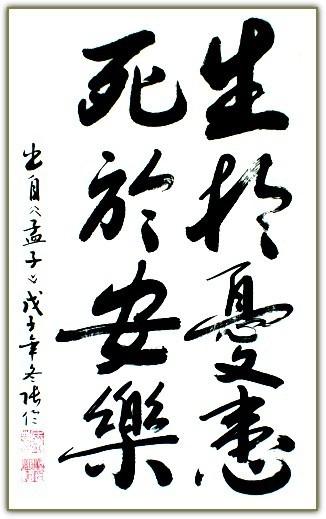 生於憂患
死於安樂
出自《孟子》戊子年冬張